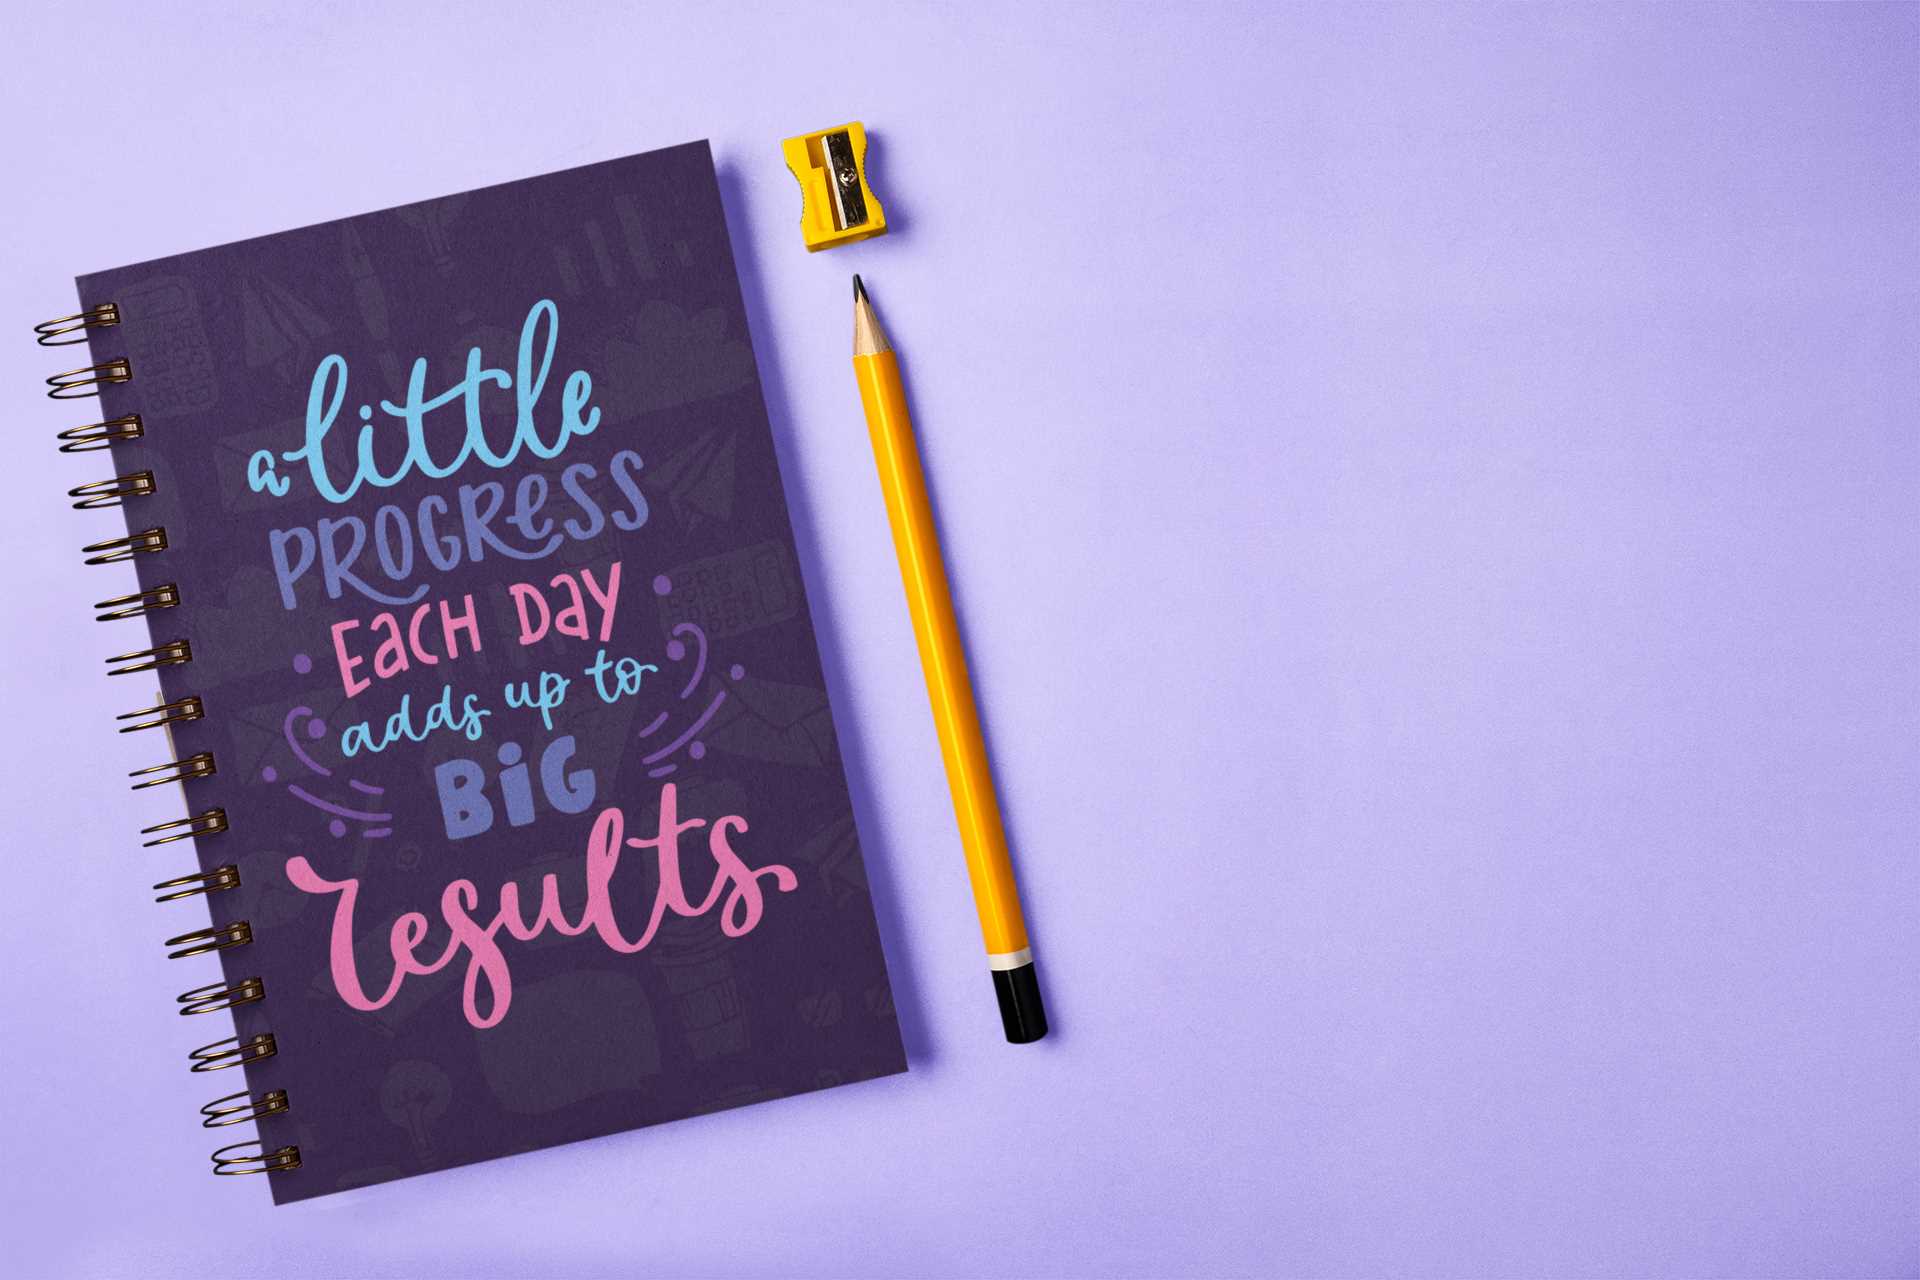 a little
PROGRESS
EaCH Day
adds up to
BiG
results